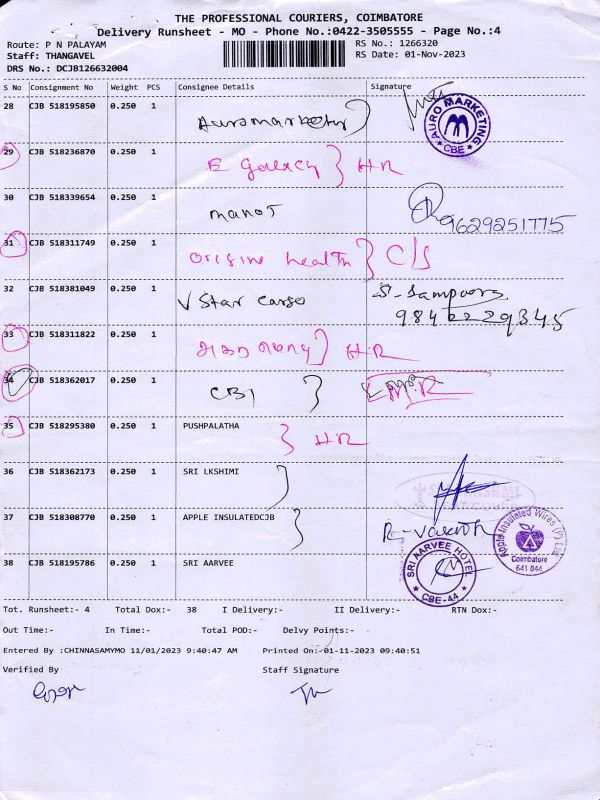 THE PROFESSIONAL COURIERS, COIMBATORE
Delivery Runsheet - MO - Phone No.:0422-3505555 - Page No.:4
Route: P N PALAYAM RS No.: 1266320
Staff: THANGAVEL RS Date: 01-Nov-2023
DRS No.: DCJB126632004
S No Consignment No Weight PCS Consignee Details Signature
28 CJB 518195850 0.250 1 AURO MARKETING CBE
29 CJB 518236870 0.250 1 E Galaxy } HR
30 CJB 518339654 0.250 1 manoj 9629251775
31 CJB 518311749 0.250 1 origine health } C/S
32 CJB 518381049 0.250 1 V Star Cargo S. Sampoorn
9842229345
33 CJB 518311822 0.250 1 } HR
34 CJB 518362017 0.250 1 CBI }
35 CJB 518295380 0.250 1 PUSHPALATHA } HR
36 CJB 518362173 0.250 1 SRI LKSHIMI }
37 CJB 518308770 0.250 1 APPLE INSULATEDCJB } Apple Insulated Wires (P) Ltd Coimbatore 641 044
38 CJB 518195786 0.250 1 SRI AARVEE SRI AARVEE HOTEL CBE-44
Tot. Runsheet:- 4 Total Dox:- 38 I Delivery:- II Delivery:- RTN Dox:-
Out Time:- In Time:- Total POD:- Delvy Points:-
Entered By :CHINNASAMYMO 11/01/2023 9:40:47 AM Printed On:-01-11-2023 09:40:51
Verified By Staff Signature